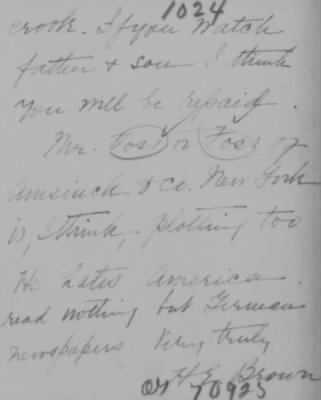 1024
crook. If you watch
father & son I think
you will be repaid.
Mr. Tost or Foss of
Amsinck & Co. New York
is, I think, plotting too
He hates America.
read nothing but German
newspapers Very truly
H E Brown
OG 70925